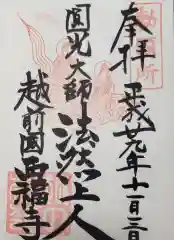 奉拝
平成廿九年十一月三日
圓光大師
法然上人
越前國
西福寺